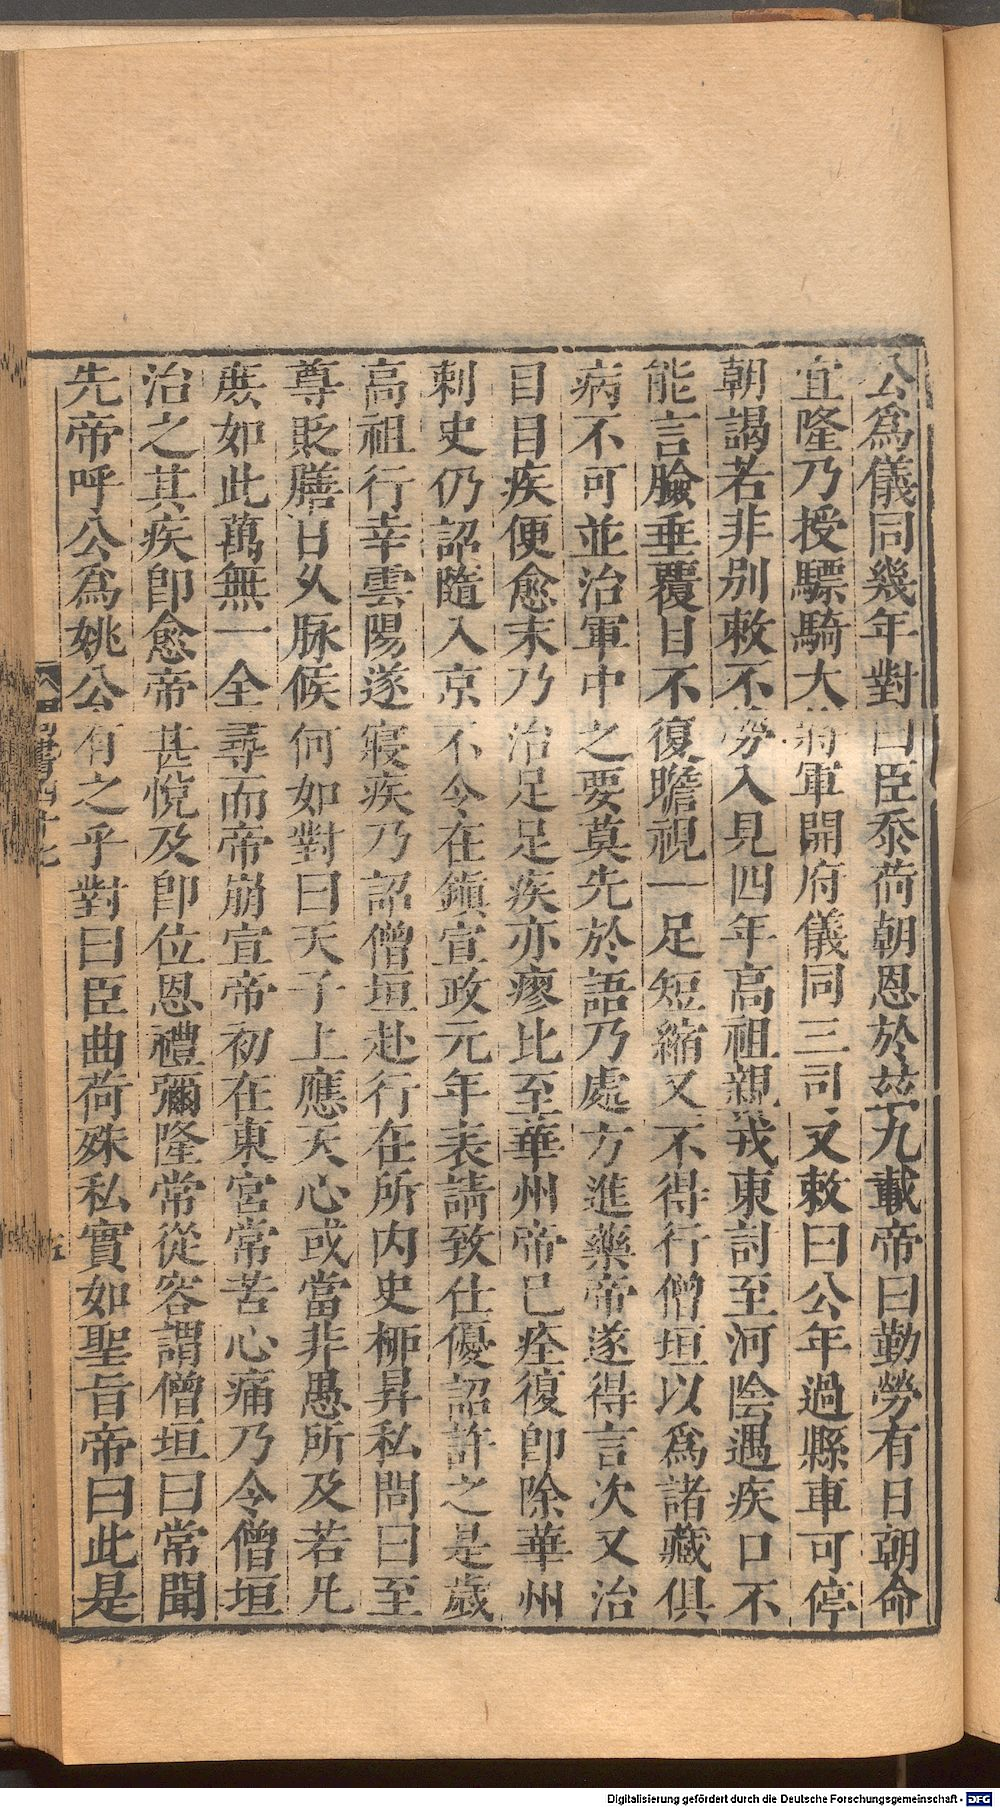 公爲儀同幾年對曰臣忝荷朝恩於茲九載帝曰勤勞有日朝命
宜隆乃授驃騎大將軍開府儀同三司又敕曰公年過縣車可停
朝謁若非別敕不勞入見四年高祖親戎東討至河陰遇疾口不
能言瞼垂覆目不復瞻視一足短縮又不得行僧垣以爲諸藏俱
病不可並治軍中之要莫先於語乃處方進藥帝遂得言次又治
目目疾便愈末乃治足足疾亦瘳比至華州帝已痊復卽除華州
刺史仍詔隨入京不令在鎭宣政元年表請致仕優詔許之是歲
高祖行幸雲陽遂寢疾乃詔僧垣赴行在所内史柳昇私問曰至
尊貶膳日久脉候何如對曰天子上應天心或當非愚所及若凡
庶如此萬無一全尋而帝崩宣帝初在東宮常苦心痛乃令僧垣
治之其疾卽愈帝甚悅及卽位恩禮彌隆常從容謂僧垣曰常聞
先帝呼公爲姚公有之乎對曰臣曲荷殊私實如聖旨帝曰此是
書四十七
五
Digitalisierung gefördert durch die Deutsche Forschungsgemeinschaft - DFG